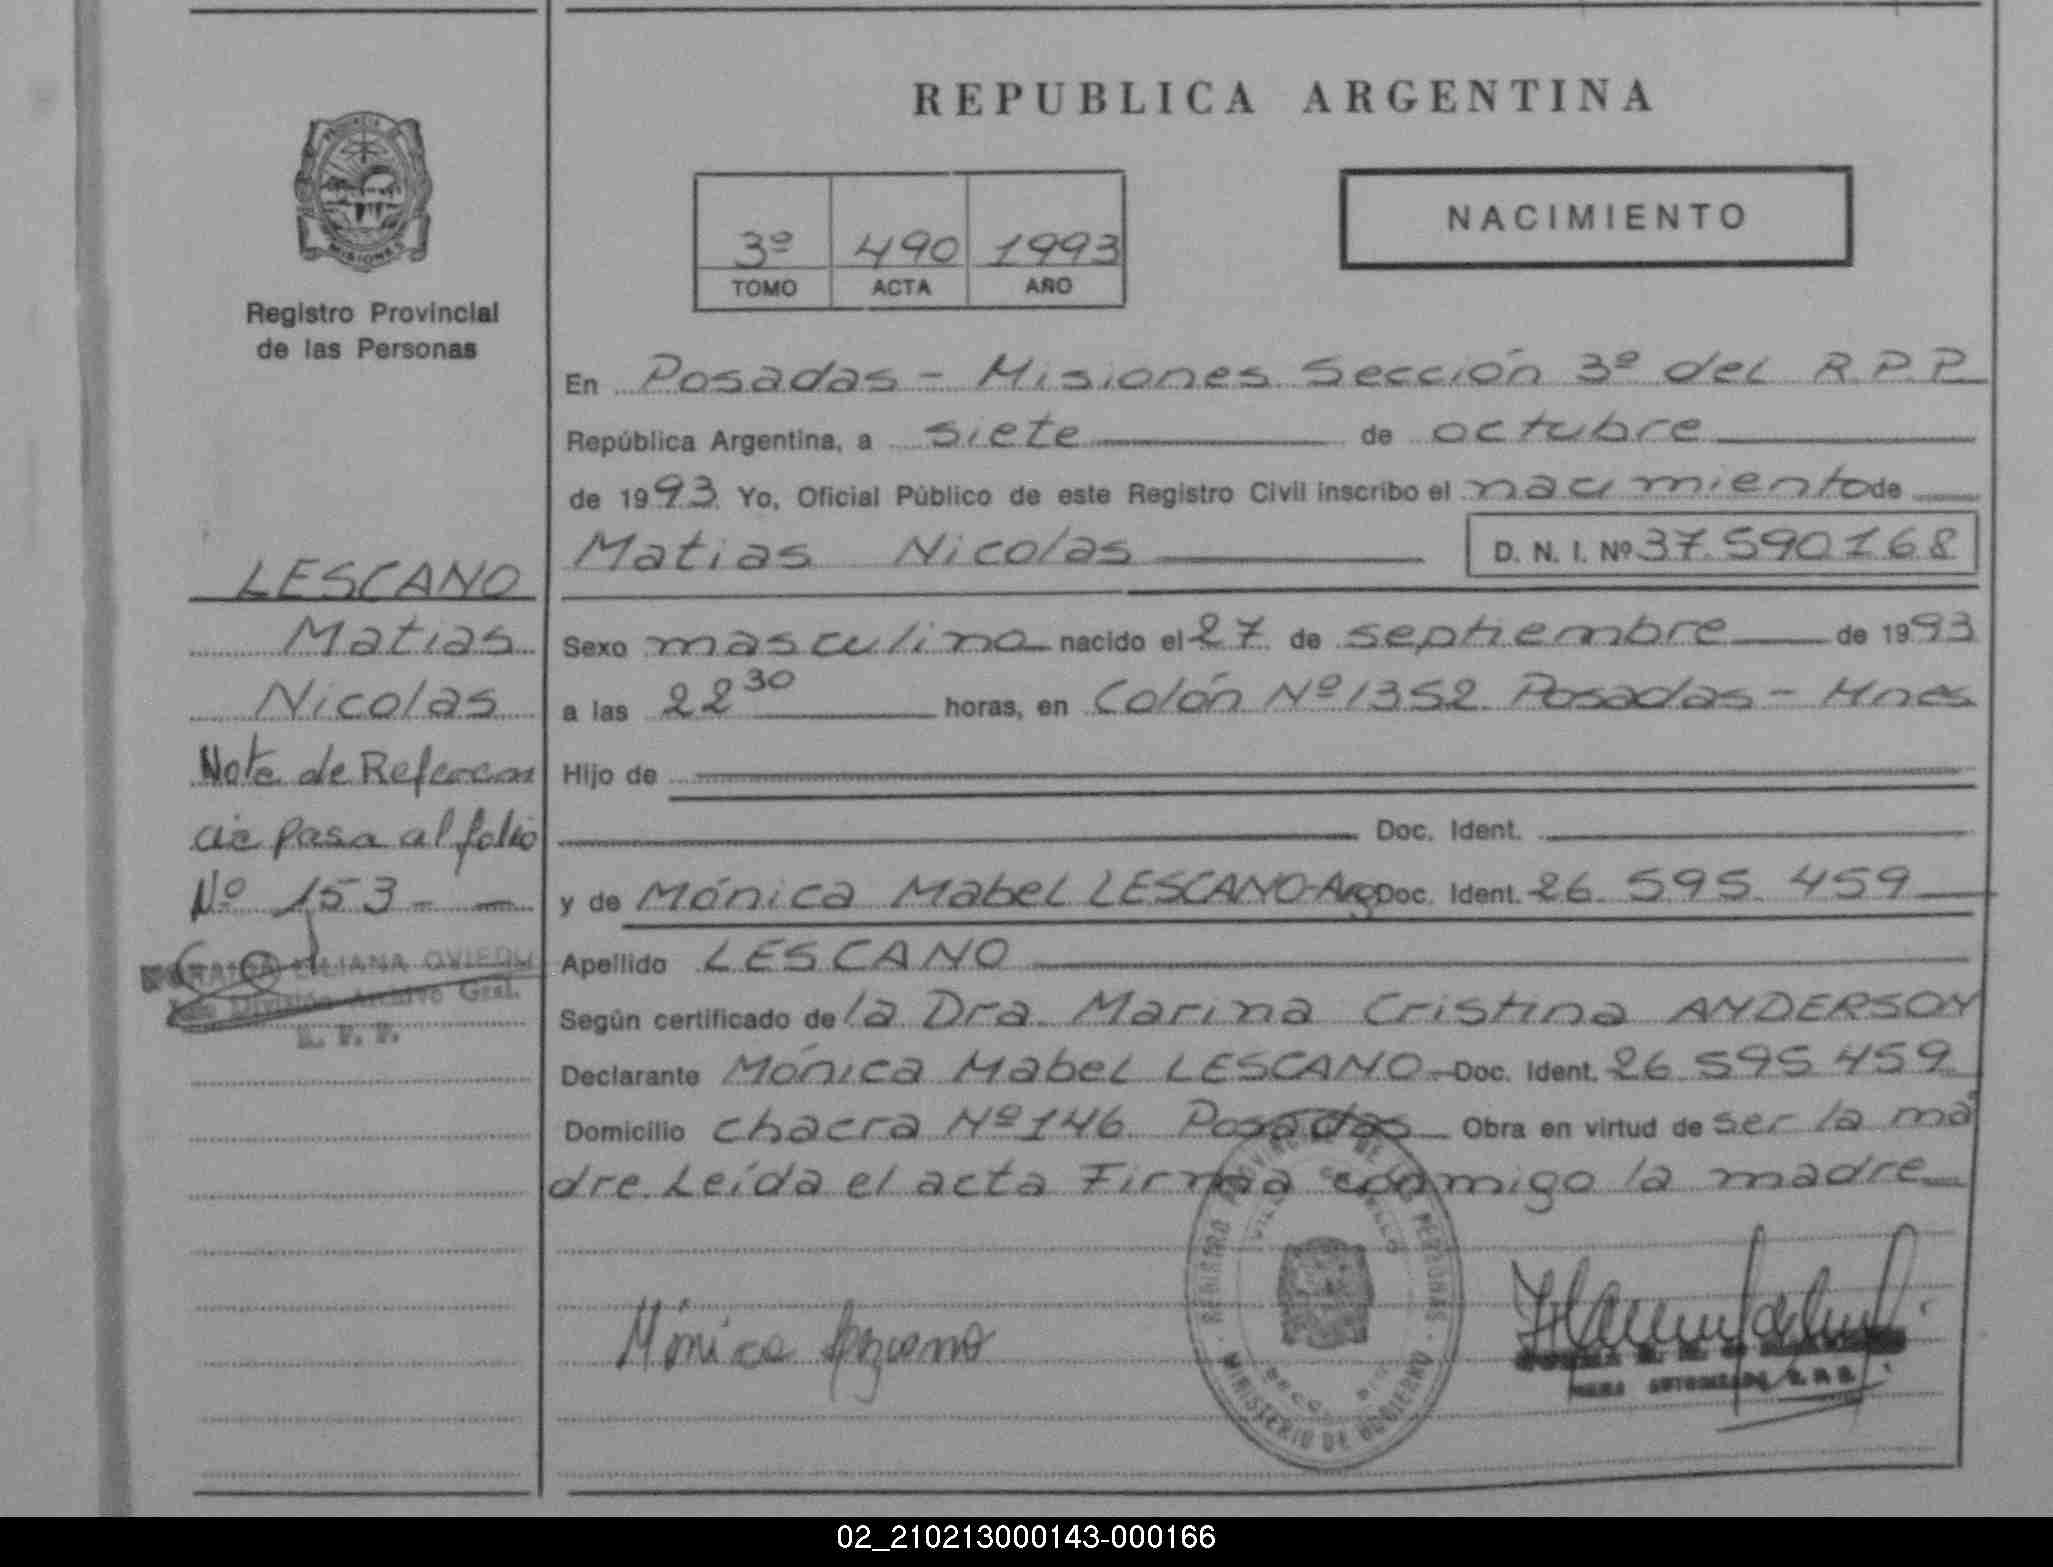 REPUBLICA ARGENTINA
PROVINCIA DE
MISIONES
Registro Provincial
de las Personas
3º 490 1993
TOMO ACTA AÑO
NACIMIENTO
En Posadas - Misiones Sección 3º del R.P.P.
República Argentina, a siete de octubre
de 1993. Yo, Oficial Público de este Registro Civil inscribo el nacimiento de
Matias Nicolas D. N. I. Nº 37.590168
LESCANO
Matias
Nicolas
Sexo masculino nacido el 27 de septiembre de 1993
a las 22 30 horas, en Colón Nº 1352 Posadas - Mnes
Note de Referen
cie pasa al folio
Nº 153 - -
LILIANA OVIEDO
División Archivo Gral.
R. P. P.
Hijo de
Doc. Ident.
y de Mónica Mabel LESCANO-Arg Doc. Ident. 26.595.459
Apellido LESCANO
Según certificado de la Dra. Marina Cristina ANDERSON
Declarante Mónica Mabel LESCANO - Doc. Ident. 26 595 459
Domicilio chacra Nº 146 Posadas Obra en virtud de ser la ma
dre. Leída el acta Firma conmigo la madre
REGISTRO PROVINCIAL DE LAS PERSONAS
MINISTERIO DE GOBIERNO
Mónica
02_210213000143-000166